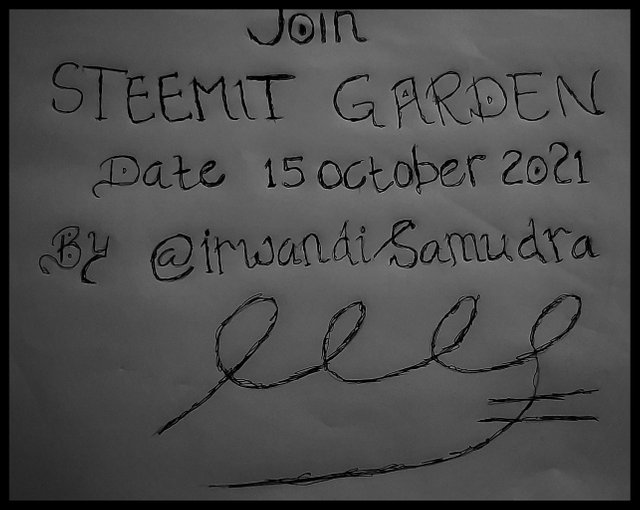 Join
STEEMIT GARDEN
Date 15 October 2021
By @irwandiSamudra